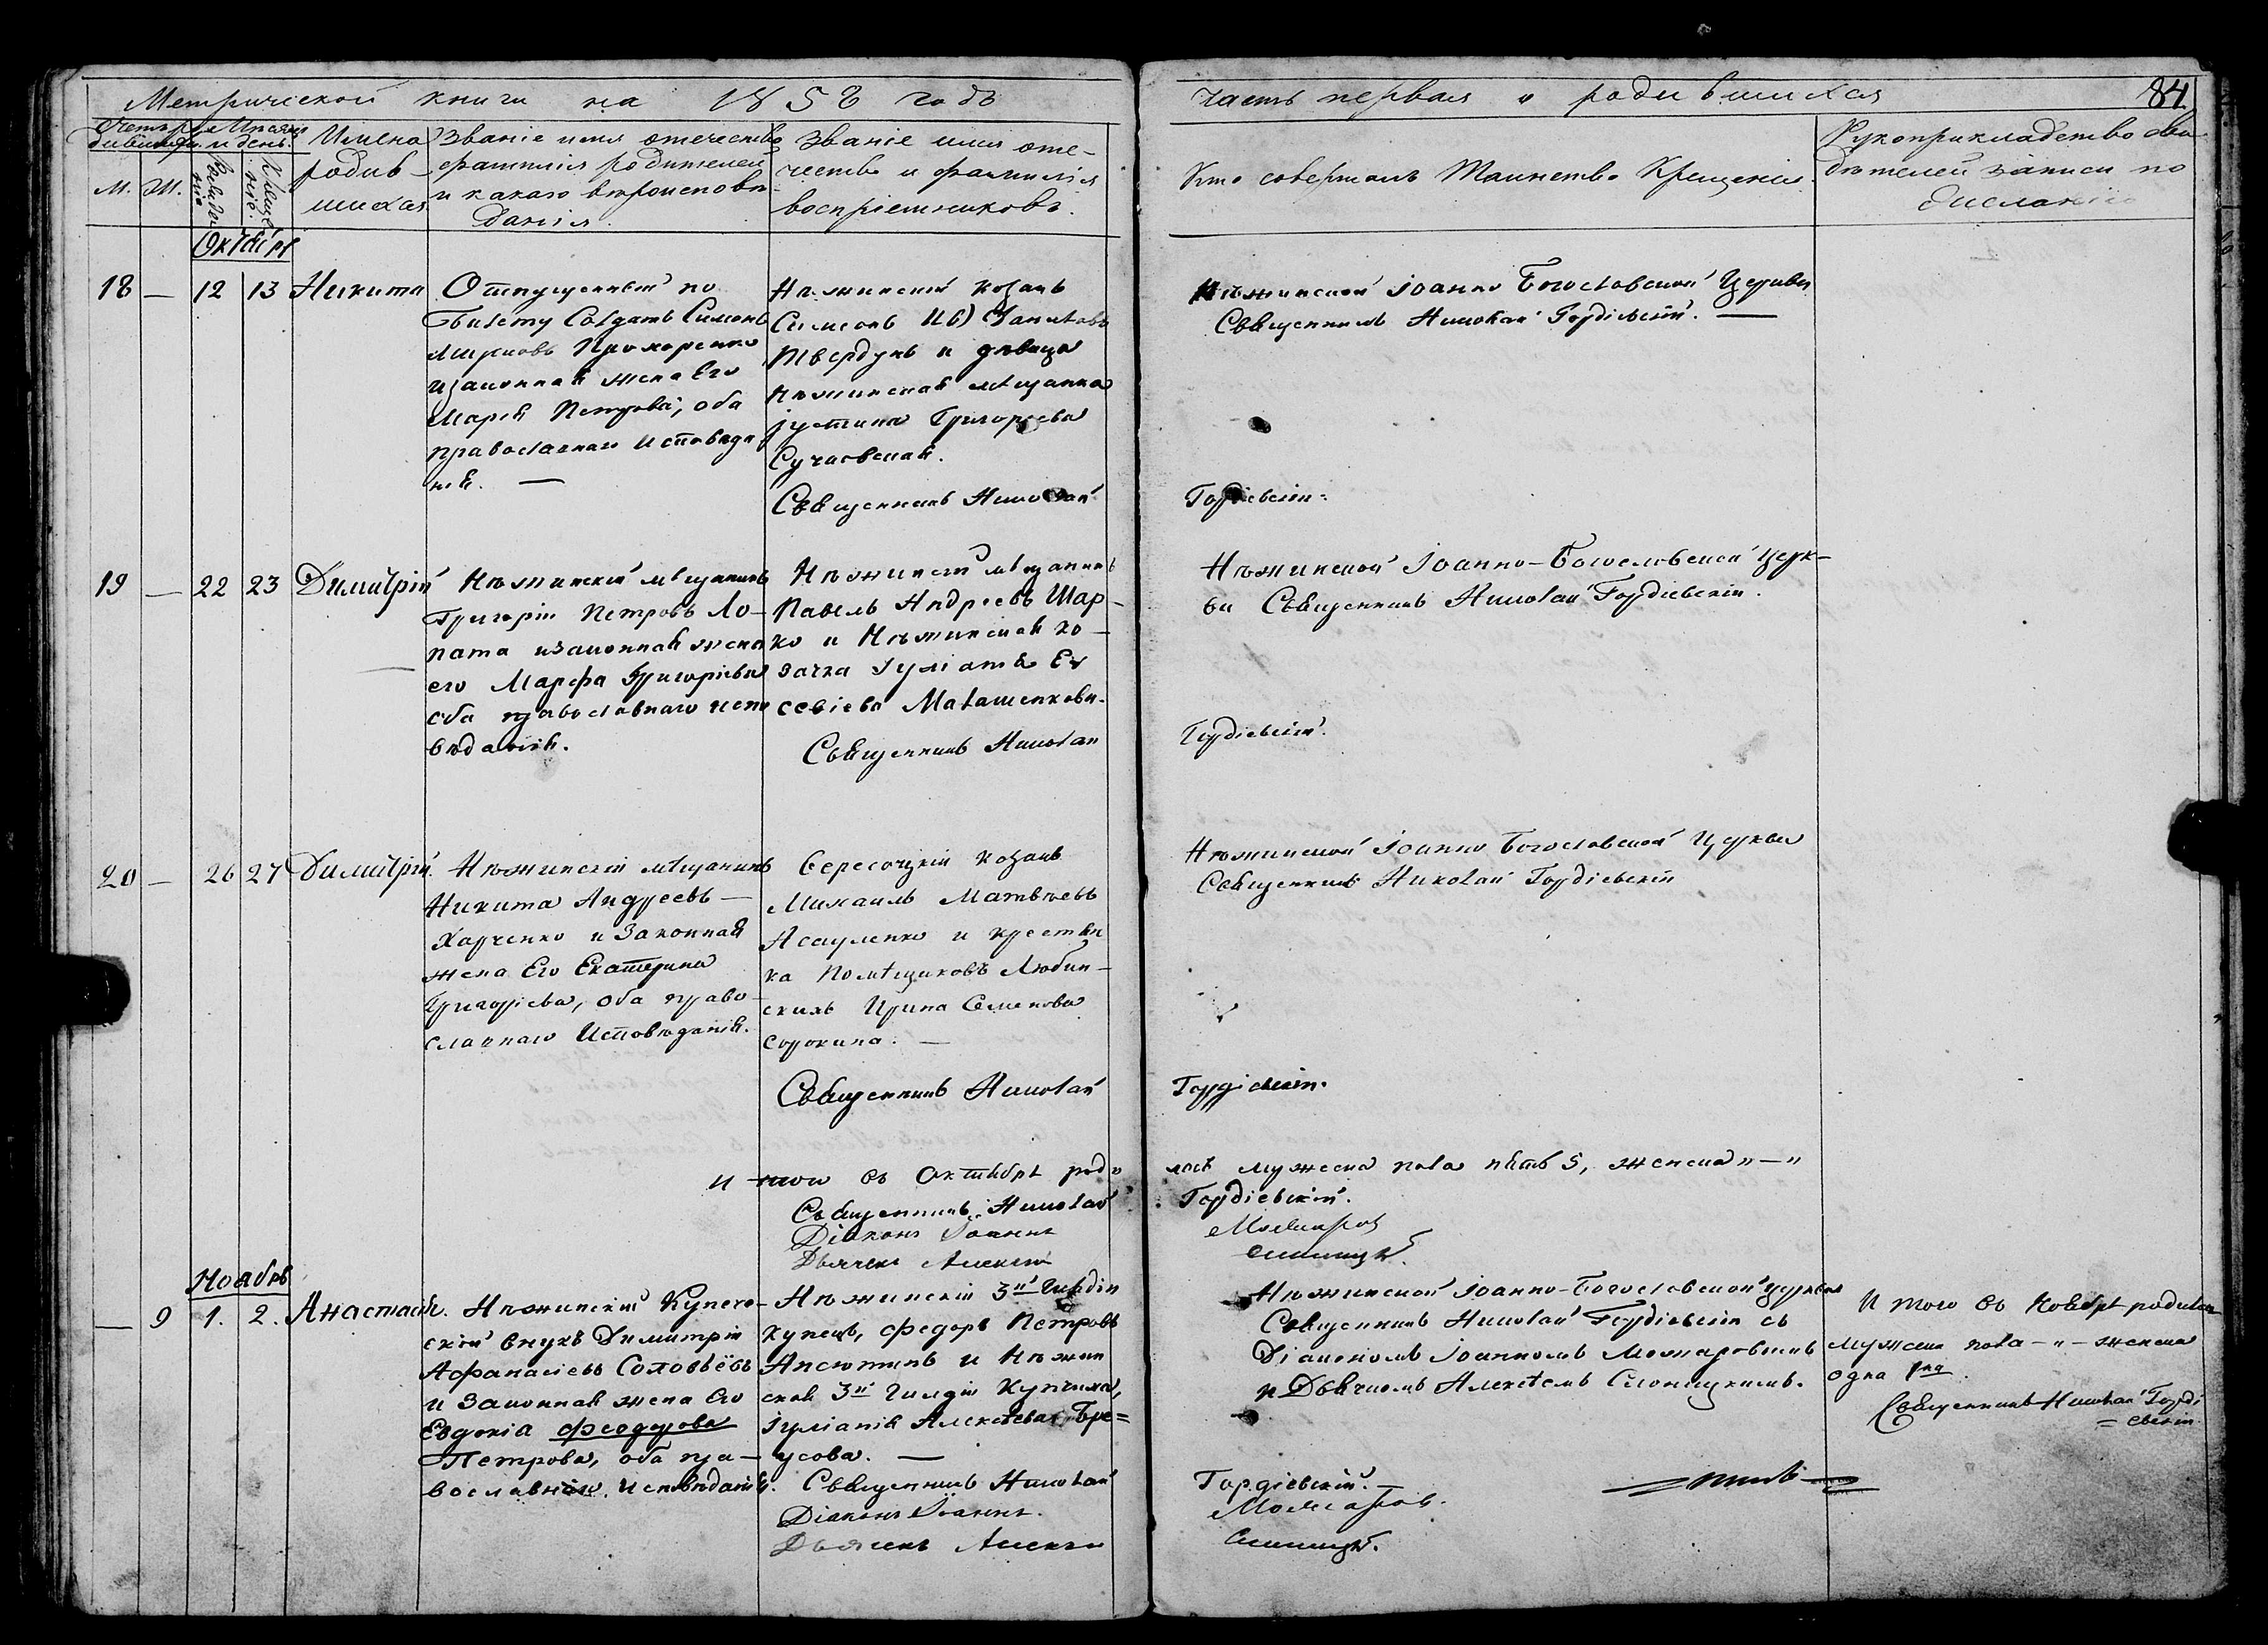 Метрической книги на 1858 годъ
часть первая о родившихся
84
Счетъ родившихся
Мѣсяцъ и день
М. Ж.
рожденія
крещенія
Имена родившихся
Званіе имя отечество
фамилія родителей
и какого вѣроисповѣ-
данія.
Званіе имя оте-
чество и фамилія
воспріемниковъ.
Кто совершалъ Таинство Крещенія.
Рукоприкладство сви-
дѣтелей записи по
Октябрь
18 — 12 13 Никита
Отпущенный по
билету Солдатъ Симонъ
Прохоренко
и законная жена Его
Марія Петрова, оба
православнаго исповѣда
нія. —
Нѣжинскій козакъ
Симеонъ
Твердунъ и дѣвица
Нѣжинская мѣщанка
Іустина Григорьева
Священникъ Николай
Нѣжинской Іоанно Богословской Церкви
Священникъ Николай Гордіевскій. —
Гордіевскій.
19 — 22 23 Димитрій
Нѣжинскій мѣщанинъ
Григорій Петровъ Ло-
пата и законная жена
его Марфа Григорьева
оба православнаго испо
вѣданія.
Нѣжинскій мѣщанинъ
Павелъ Андреевъ Шар-
ко и Нѣжинская ко-
зачка Іуліанія Ев
севіева Малашенкова.
Священникъ Николай
Нѣжинской Іоанно-Богословской Церк-
ви Священникъ Николай Гордіевскій.
Гордіевскій.
20 — 26 27 Димитрій
Нѣжинскій мѣщанинъ
Никита Андреевъ —
Харченко и Законная
жена Его Екатерина
Григорьева, оба право-
славнаго Исповѣданія.
Вересоцкій козакъ
Михаилъ Матвѣевъ
Асауленко и крестьян
ка помѣщиковъ Любин-
скихъ Ирина Семенова
Сорокина. —
Священникъ Николай
Нѣжинской Іоанно Богословской Церкви
Священникъ Николай Гордіевскій
Гордіевскій.
И того въ Октябрѣ роди
лось мужеска пола пять 5, женска „—„
Священникъ Николай
Гордіевскій.
Діаконъ Іоаннъ
Дьячекъ Алексѣй
Ноябрь
— 9 1. 2. Анастасія.
Нѣжинскій Купече-
скій внукъ Димитрій
Афанасіевъ Соловьёвъ
и Законная жена его
Евдокія Феодорова
Петрова, оба пра-
вославнаго исповѣданія.
Нѣжинскій 3й Гильдіи
купецъ, Федоръ Петровъ
Аксютинъ и Нѣжин
ская 3й Гильдіи Купчиха,
Іуліанія Алексѣева Бре=
усова. —
Священникъ Николай
Діаконъ Іоаннъ.
Дьячекъ Алексѣй
Нѣжинской Іоанно-Богословской церкви
Священникъ Николай Гордіевскій съ
Діакономъ Іоанномъ Можаровскимъ
и Дьячкомъ Алексѣемъ Слоницкимъ.
Гордіевскій. —
И того въ Ноябрѣ родилось
мужеска пола — „ — женска
одна 1на.
Священникъ Николай Горді
= евскій.